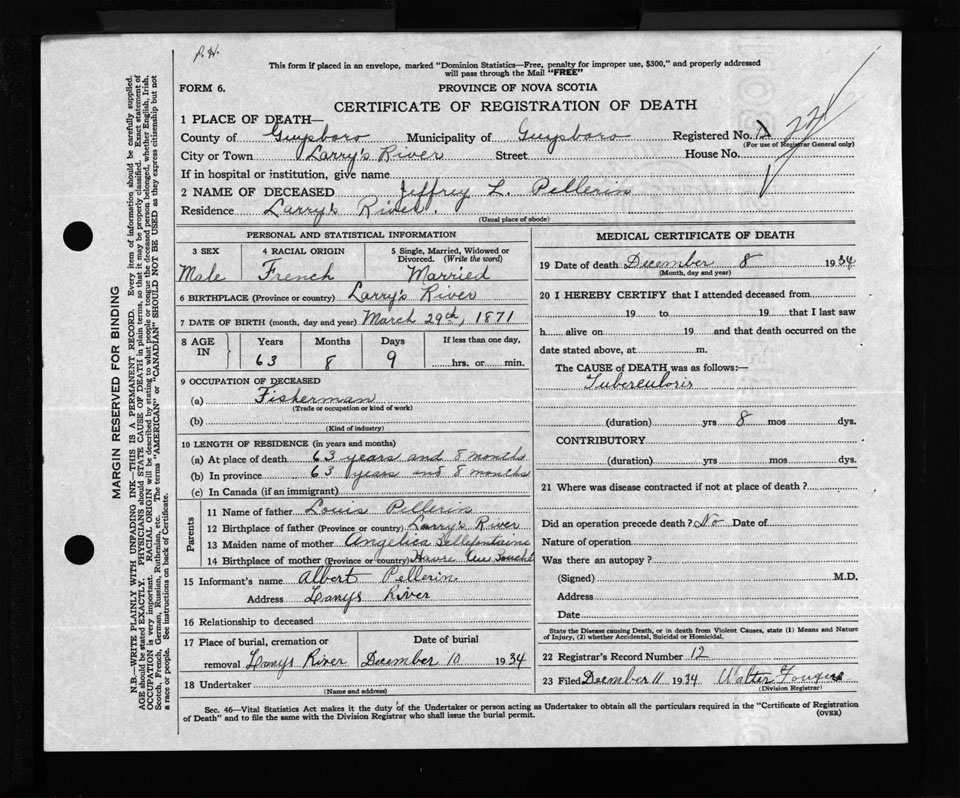 P.H.
This form if placed in an envelope, marked "Dominion Statistics—Free, penalty for improper use, $300," and properly addressed
will pass through the Mail "FREE"
FORM 6. PROVINCE OF NOVA SCOTIA
CERTIFICATE OF REGISTRATION OF DEATH
1 PLACE OF DEATH—
County of Guysboro Municipality of Guysboro Registered No.
(For use of Registrar General only)
City or Town Larry's River Street House No.
If in hospital or institution, give name
2 NAME OF DECEASED Jeffrey L. Pellerin
Residence Larry's River.
(Usual place of abode)
PERSONAL AND STATISTICAL INFORMATION
3 SEX 4 RACIAL ORIGIN 5 Single, Married, Widowed or
Divorced. (Write the word)
Male French Married
6 BIRTHPLACE (Province or country) Larry's River
7 DATE OF BIRTH (month, day and year) March 29th, 1871
8 AGE IN Years Months Days If less than one day,
63 8 9 hrs. or min.
9 OCCUPATION OF DECEASED
(a) Fisherman
(Trade or occupation or kind of work)
(b)
(Kind of industry)
10 LENGTH OF RESIDENCE (in years and months)
(a) At place of death 63 years and 8 months
(b) In province 63 years and 8 months
(c) In Canada (if an immigrant)
Parents
11 Name of father Louis Pellerin
12 Birthplace of father (Province or country) Larry's River
13 Maiden name of mother Angelica
14 Birthplace of mother (Province or country) Havre
15 Informant's name Albert Pellerin
Address Larrys River
16 Relationship to deceased
17 Place of burial, cremation or Date of burial
removal Larrys River December 10 1934
18 Undertaker
(Name and address)
MEDICAL CERTIFICATE OF DEATH
19 Date of death December 8 1934
(Month, day and year)
20 I HEREBY CERTIFY that I attended deceased from
19 to 19 that I last saw
h alive on 19 and that death occurred on the
date stated above, at m.
The CAUSE OF DEATH was as follows:—
Tuberculosis
(duration) yrs 8 mos dys.
CONTRIBUTORY
(duration) yrs. mos. dys.
21 Where was disease contracted if not at place of death?
Did an operation precede death? No Date of
Nature of operation
Was there an autopsy?
(Signed) M.D.
Address
Date
State the Disease causing Death, or in death from Violent Causes, state (1) Means and Nature
of Injury, (2) whether Accidental, Suicidal or Homicidal.
22 Registrar's Record Number 12
23 Filed December 11 1934 Walter Fougere
(Division Registrar)
Sec. 46—Vital Statistics Act makes it the duty of the Undertaker or person acting as Undertaker to obtain all the particulars required in the "Certificate of Registration
of Death" and to file the same with the Division Registrar who shall issue the burial permit. (OVER)
MARGIN RESERVED FOR BINDING
N.B.—WRITE PLAINLY WITH UNFADING INK—THIS IS A PERMANENT RECORD. Every item of information should be carefully supplied.
AGE should be stated EXACTLY. PHYSICIANS should STATE CAUSE OF DEATH in plain terms, so that it may be properly classified. Exact statement of
OCCUPATION is very important. RACIAL ORIGIN will be described by stating to what people or tongue the deceased person belonged, whether English, Irish,
Scotch, French, German, Russian, Ruthenian, etc. The terms "AMERICAN" or "CANADIAN" SHOULD NOT BE USED as they express citizenship but not
a race or people. See instructions on back of Certificate.